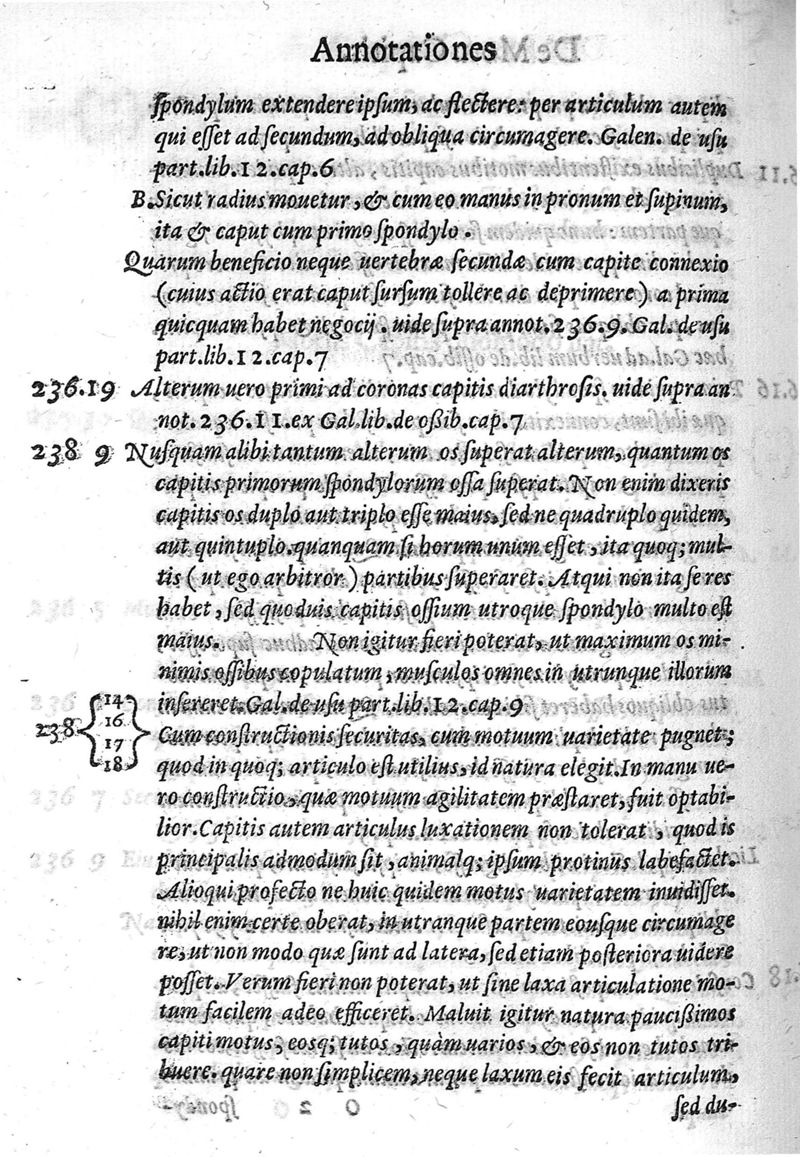 Annotationes
ſpondylum extendere ipſum, ac flectere: per articulum autem
qui eſſet ad ſecundum, ad obliqua circumagere. Galen. de uſu
part. lib. 12. cap. 6
B. Sicut radius mouetur, & cum eo manus in pronum et ſupinum,
ita & caput cum primo ſpondylo.
Quarum beneficio neque uertebræ ſecundæ cum capite connexio
(cuius actio erat caput ſurſum tollere ac deprimere) a prima
quicquam habet negocij. uide ſupra annot. 236. 9. Gal. de uſu
part. lib. 12. cap. 7
236.19 Alterum uero primi ad coronas capitis diarthroſis. uide ſupra an
not. 236. 11. ex Gal. lib. de oßib. cap. 7
238 9 Nuſquam alibi tantum alterum os ſuperat alterum, quantum os
capitis primorum ſpondylorum oſſa ſuperat. Non enim dixeris
capitis os duplo aut triplo eſſe maius, ſed ne quadruplo quidem,
aut quintuplo. quanquam ſi horum unum eſſet, ita quoq; mul-
tis (ut ego arbitror) partibus ſuperaret. Atqui non ita ſe res
habet, ſed quoduis capitis oſſium utroque ſpondylo multo eſt
maius. Non igitur fieri poterat, ut maximum os mi-
nimis oſſibus copulatum, muſculos omnes in utrunque illorum
inſereret. Gal. de uſu part. lib. 12. cap. 9
238 {14 16 17 18} Cum conſtructionis ſecuritas, cum motuum uarietate pugnet;
quod in quoq; articulo eſt utilius, id natura elegit. In manu ue-
ro conſtructio, quæ motuum agilitatem præſtaret, fuit optabi-
lior. Capitis autem articulus luxationem non tolerat, quod is
principalis admodum ſit, animalq; ipſum protinus labefactet.
Alioqui profecto ne huic quidem motus uarietatem inuidiſſet.
nihil enim certe oberat, in utranque partem eouſque circumage
re, ut non modo quæ ſunt ad latera, ſed etiam poſteriora uidere
poſſet. Verum fieri non poterat, ut ſine laxa articulatione mo-
tum facilem adeo efficeret. Maluit igitur natura paucißimos
capiti motus, eosq; tutos, quàm uarios, & eos non tutos tri-
buere. quare non ſimplicem, neque laxum eis fecit articulum,
ſed du-